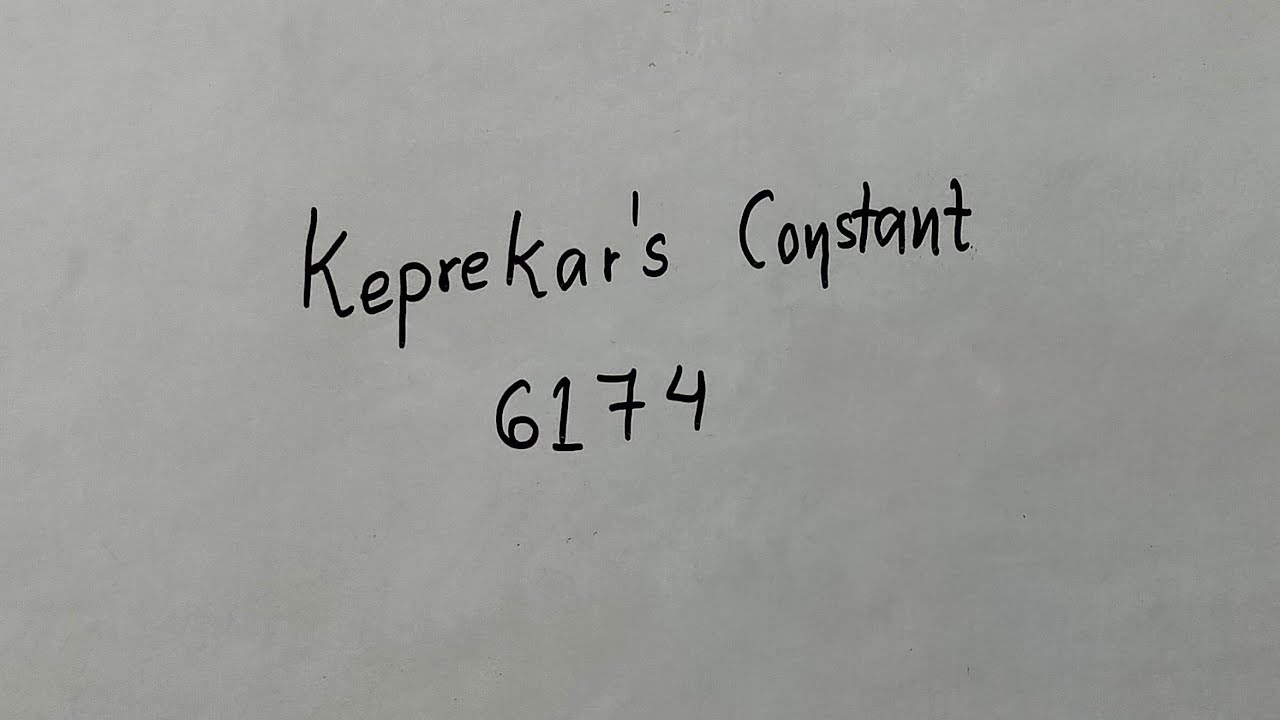 Keprekar's Constant
6174